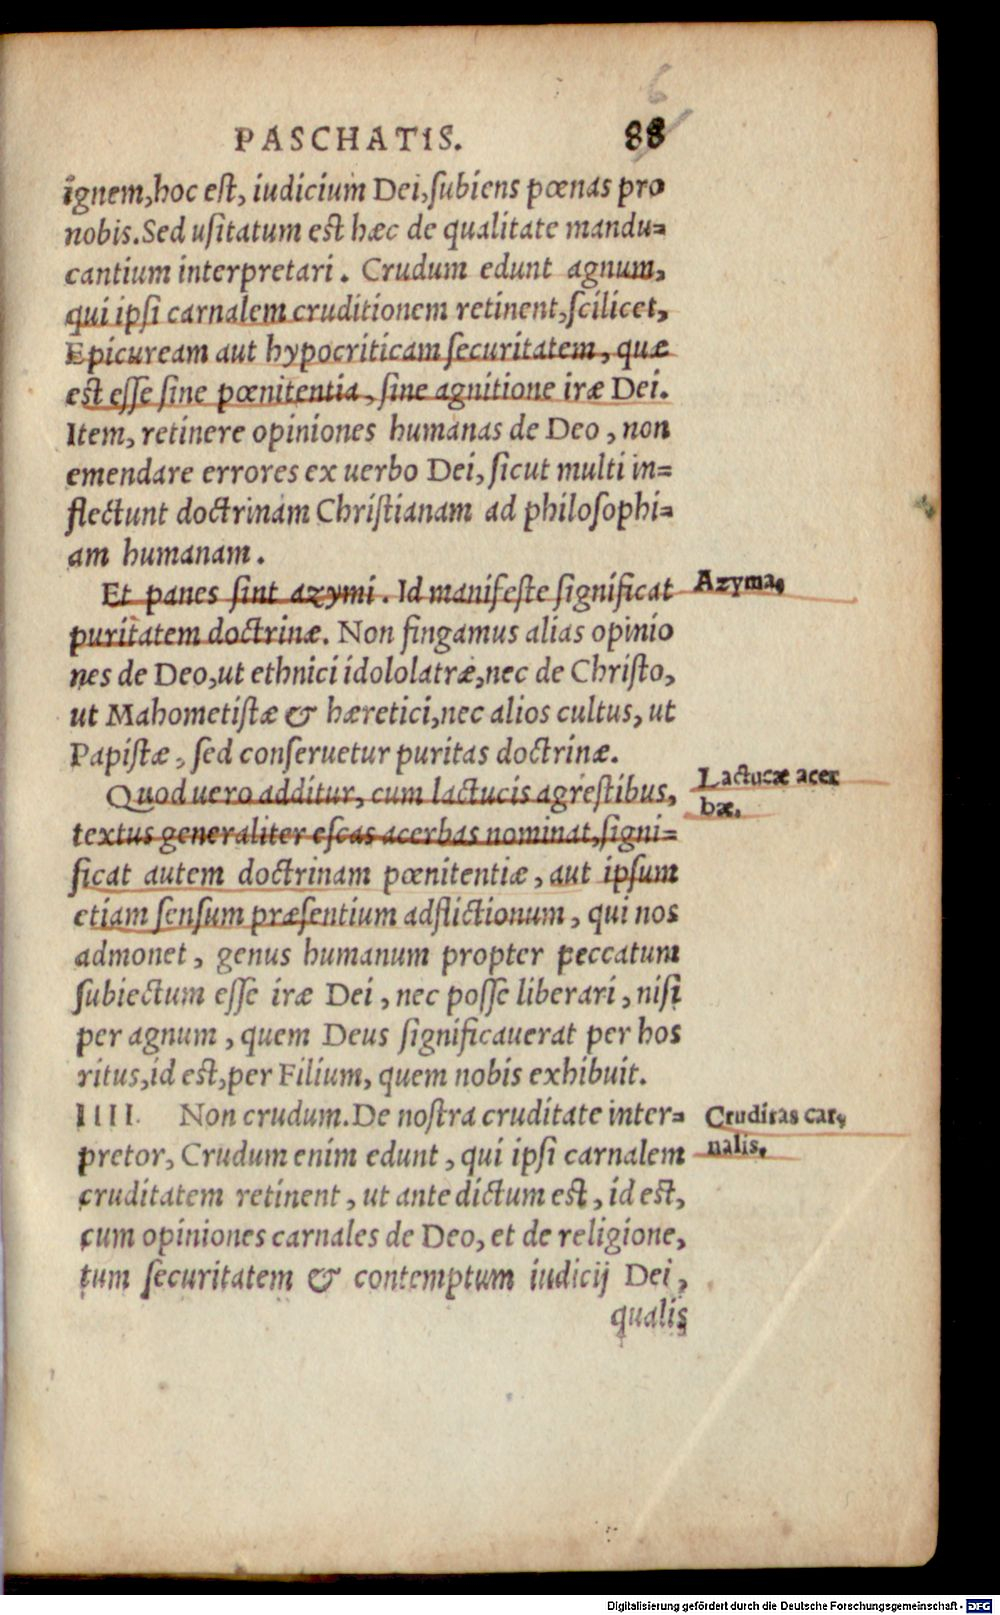 6
PASCHATIS. 88
ignem, hoc est, iudicium Dei, subiens pœnas pro
nobis. Sed usitatum est hæc de qualitate mandu=
cantium interpretari. Crudum edunt agnum,
qui ipsi carnalem cruditionem retinent, scilicet,
Epicuream aut hypocriticam securitatem, quæ
est esse sine pœnitentia, sine agnitione iræ Dei.
Item, retinere opiniones humanas de Deo, non
emendare errores ex uerbo Dei, sicut multi in=
flectunt doctrinam Christianam ad philosophi=
am humanam.
Et panes sint azymi. Id manifeste significat
Azyma.
puritatem doctrinæ. Non fingamus alias opinio
nes de Deo, ut ethnici idololatræ, nec de Christo,
ut Mahometistæ & hæretici, nec alios cultus, ut
Papistæ, sed conseruetur puritas doctrinæ.
Quod uero additur, cum lactucis agrestibus,
Lactucæ acer
bæ.
textus generaliter escas acerbas nominat, signi=
ficat autem doctrinam pœnitentiæ, aut ipsum
etiam sensum præsentium adflictionum, qui nos
admonet, genus humanum propter peccatum
subiectum esse iræ Dei, nec posse liberari, nisi
per agnum, quem Deus significauerat per hos
ritus, id est, per Filium, quem nobis exhibuit.
IIII. Non crudum. De nostra cruditate inter=
Cruditas car,
nalis.
pretor, Crudum enim edunt, qui ipsi carnalem
cruditatem retinent, ut ante dictum est, id est,
cum opiniones carnales de Deo, et de religione,
tum securitatem & contemptum iudicij Dei,
qualis
Digitalisierung gefördert durch die Deutsche Forschungsgemeinschaft - DFG